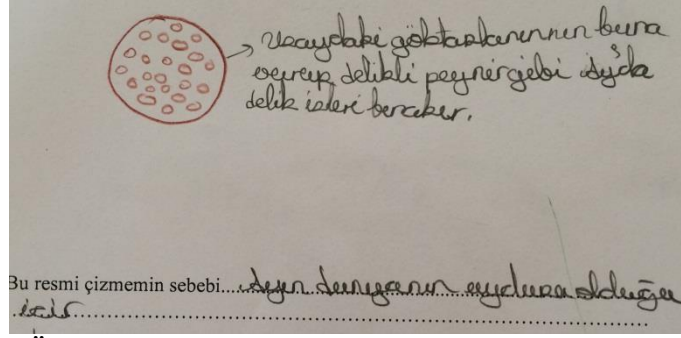 Uzaydaki göktaslarınının buna
carpıp delikli peynir gibi Ay'da
delik izleri bırakır.
Bu resmi çizmemin sebebi....Ayın dünyanın uydusu olduğu
için